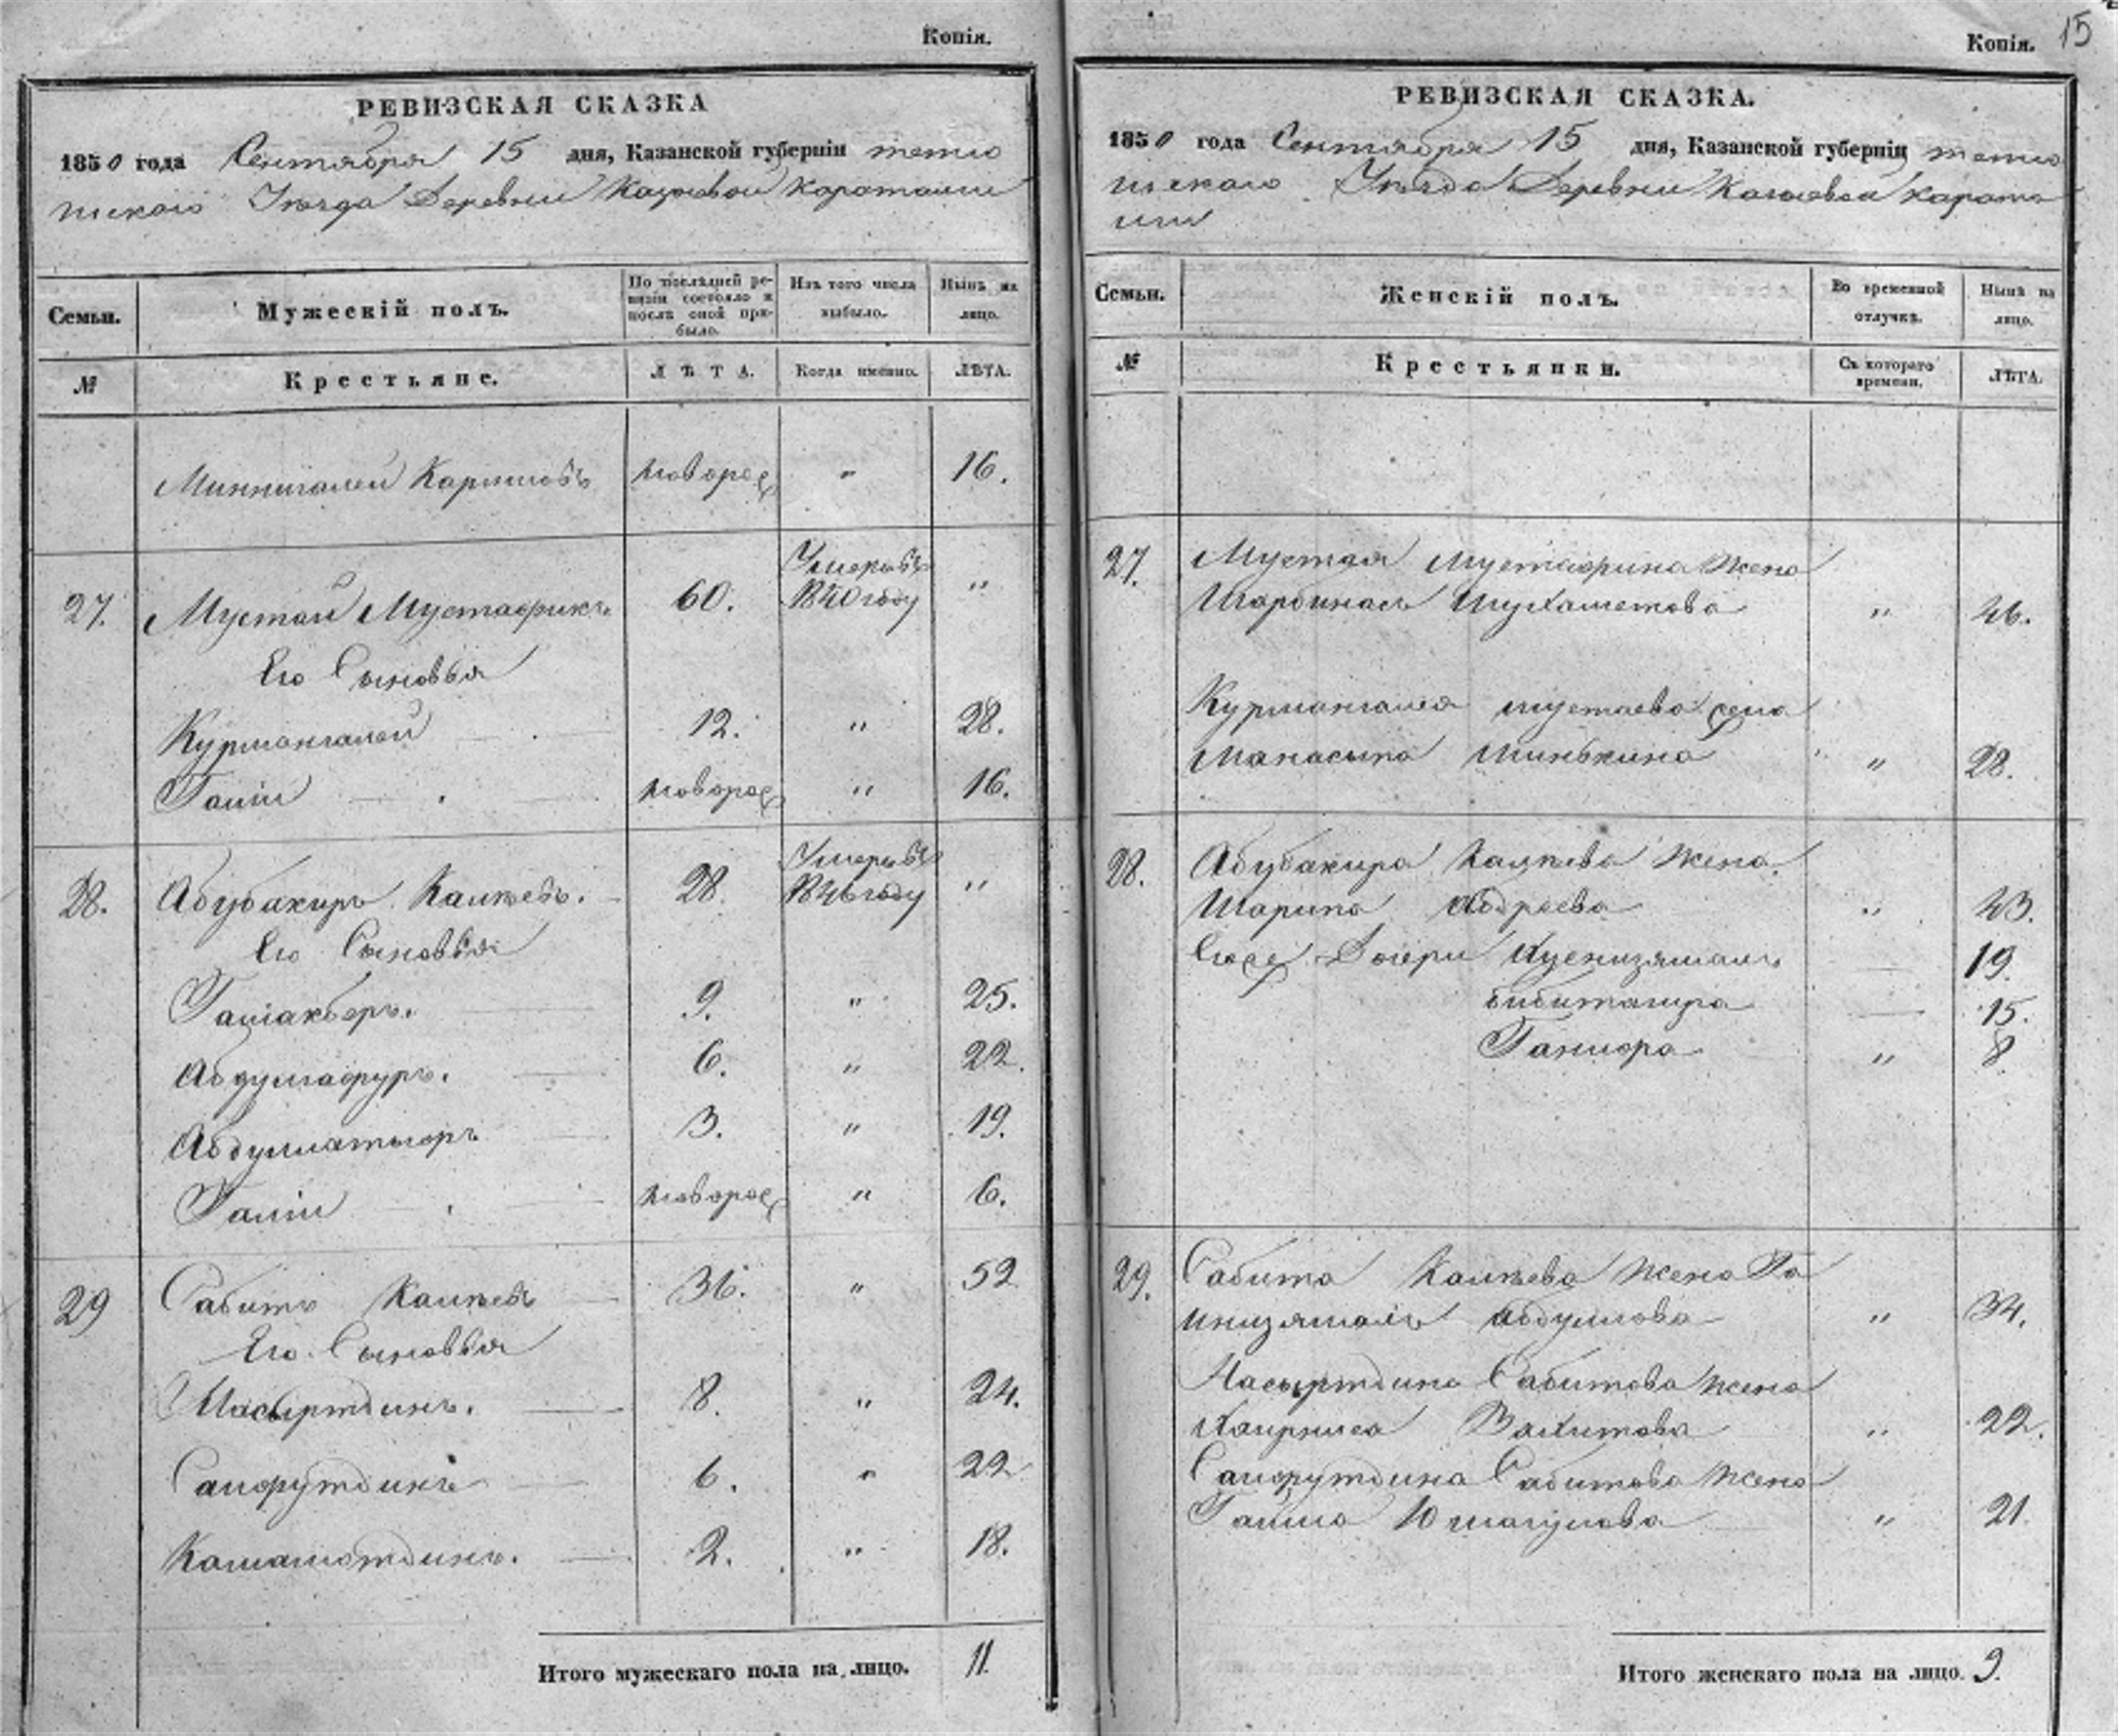 Копія.
РЕВИЗСКАЯ СКАЗКА
1850 года Сентября 15 дня, Казанской губерніи тетю
шскаго Уѣзда Деревни Каратали
Семьи.
Мужескій полъ.
По послѣдней ре-
визіи состояло и
послѣ оной при-
было.
Изъ того числа
выбыло.
Нынѣ на
лицо.
№
Крестьяне.
ЛѢТА.
Когда именно.
ЛѢТА.
Миннигалей Каримовъ новорож „ 16.
27. Мустай Мустафинъ 60. Умеръ въ 1840 году „
Его Сыновья
Курмангалей 12. „ 28.
Галіи новорож „ 16.
28. Абубакиръ Калѣевъ. 28 Умеръ въ 1846 году „
Его Сыновья
Галіакберъ. 9. „ 25.
Абдулгафуръ. 6. „ 22.
3. „ 19.
Галіи новорож „ 6.
29 Сабитъ Калѣевъ 36. „ 52
Его Сыновья
Насыртдинъ. 8. „ 24.
Сайфутдинъ 6. „ 22
Камалетдинъ. 2. „ 18.
Итого мужескаго пола на лицо. 11.
Копія. 15
РЕВИЗСКАЯ СКАЗКА.
1850 года Сентября 15 дня, Казанской губерніи тетю
шскаго Уѣзда Деревни Карата
ли
Семьи.
Женскій полъ.
Во временной
отлучкѣ.
Нынѣ на
лицо.
№
Крестьянки.
Съ котораго
времени.
ЛѢТА.
27. Мустая Мустафина жена
Мухаметова „ 46.
Курмангалея Мустаева жена
Минькина „ 28.
28. Абубакира Калѣева жена
Шарипа „ 43.
Дочери 19.
Бибитагира 15.
8
29. Сабита Калѣева жена
Абдулова „ 34.
Насыртдина Сабитова жена
Вахитова „ 22.
Сайфутдина Сабитова жена
Галима Юмагулова „ 21
Итого женскаго пола на лицо. 9.